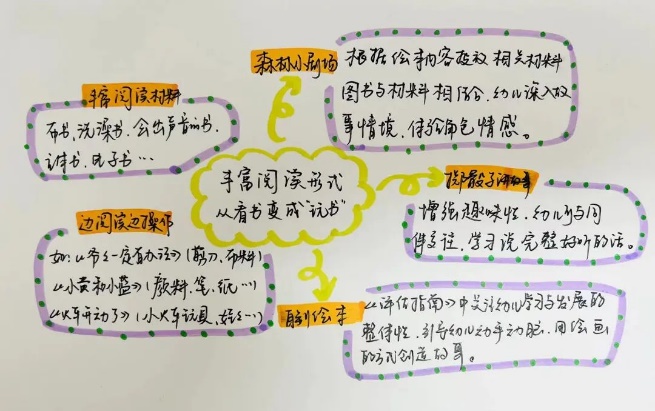 森林小剧场
根据绘本内容投放相关材料
图书与材料相结合,幼儿深入故
事情境,体验角色情感。
丰富阅读材料
布书、洗澡书、会出声音的书、
电子书…
丰富阅读形式
从看书变成“玩书”
掷骰子讲故事
增强趣味性,幼儿与同
伴多说,学习说完整好听的话。
边阅读边操作
如:《爷爷一定有办法》(剪刀、布料)
《小黄和小蓝》(颜料、笔、纸…)
《火车开动了》(小火车玩具、…)
自制绘本
《评估指南》中关注幼儿学习与发展的
整体性,引导幼儿动手动脑,用绘画
的方式创造故事。